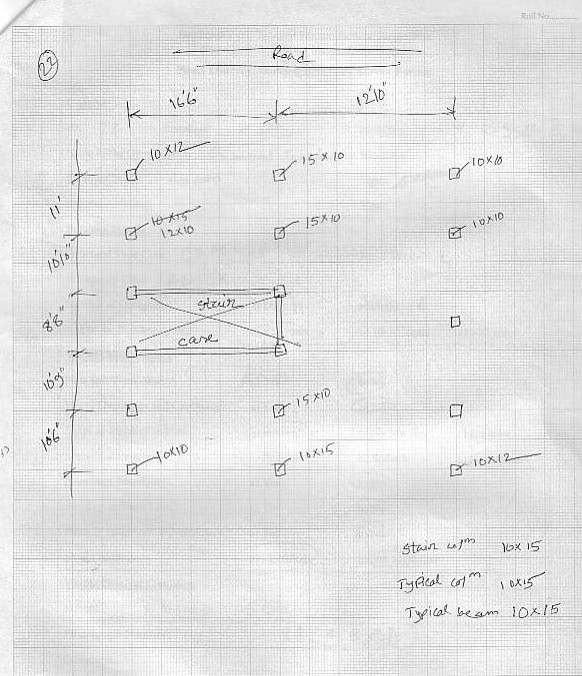 Roll No.
22
Road
16'6" 12'10"
10x12 15x10 10x10
11'
10x15 15x10 10x10
12x10
10'10"
stair
8'8"
case
10'9"
15x10
10'6"
10x10 10x15 10x12
Stair colm 10x15
Typical colm 10x15
Typical beam 10x15